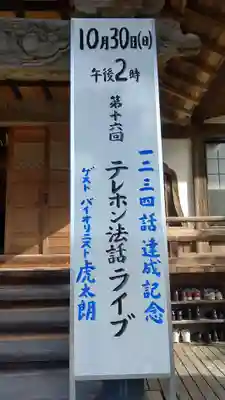 10月30日(日)
午後2時
一二三四話達成記念
第十六回
テレホン法話ライブ
ゲスト バイオリニスト 虎太朗